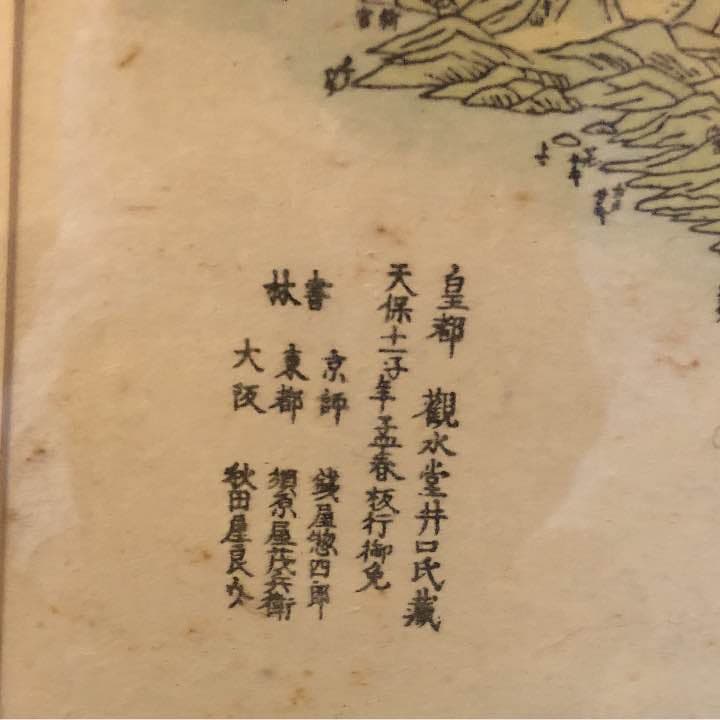 皇都 觀水堂井口氏藏
天保十一子年孟春板行御免
書林
京師 錢屋惣四郎
東都 須原屋茂兵衛
大阪 秋田屋良